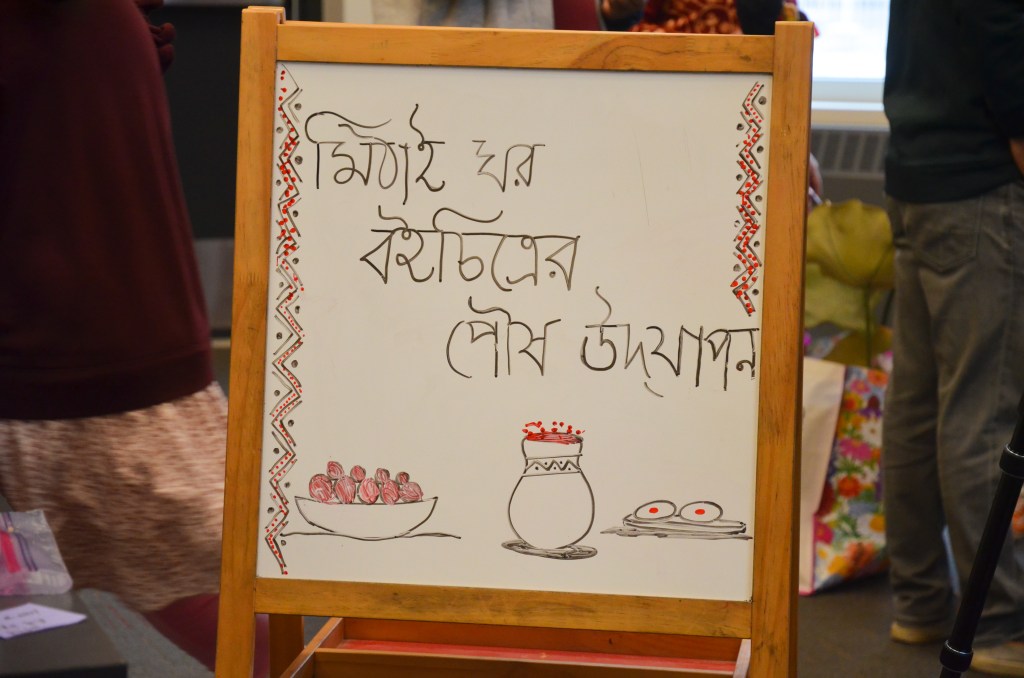 মিঠাই ঘর
বইচিত্রের
পৌষ উদযাপন